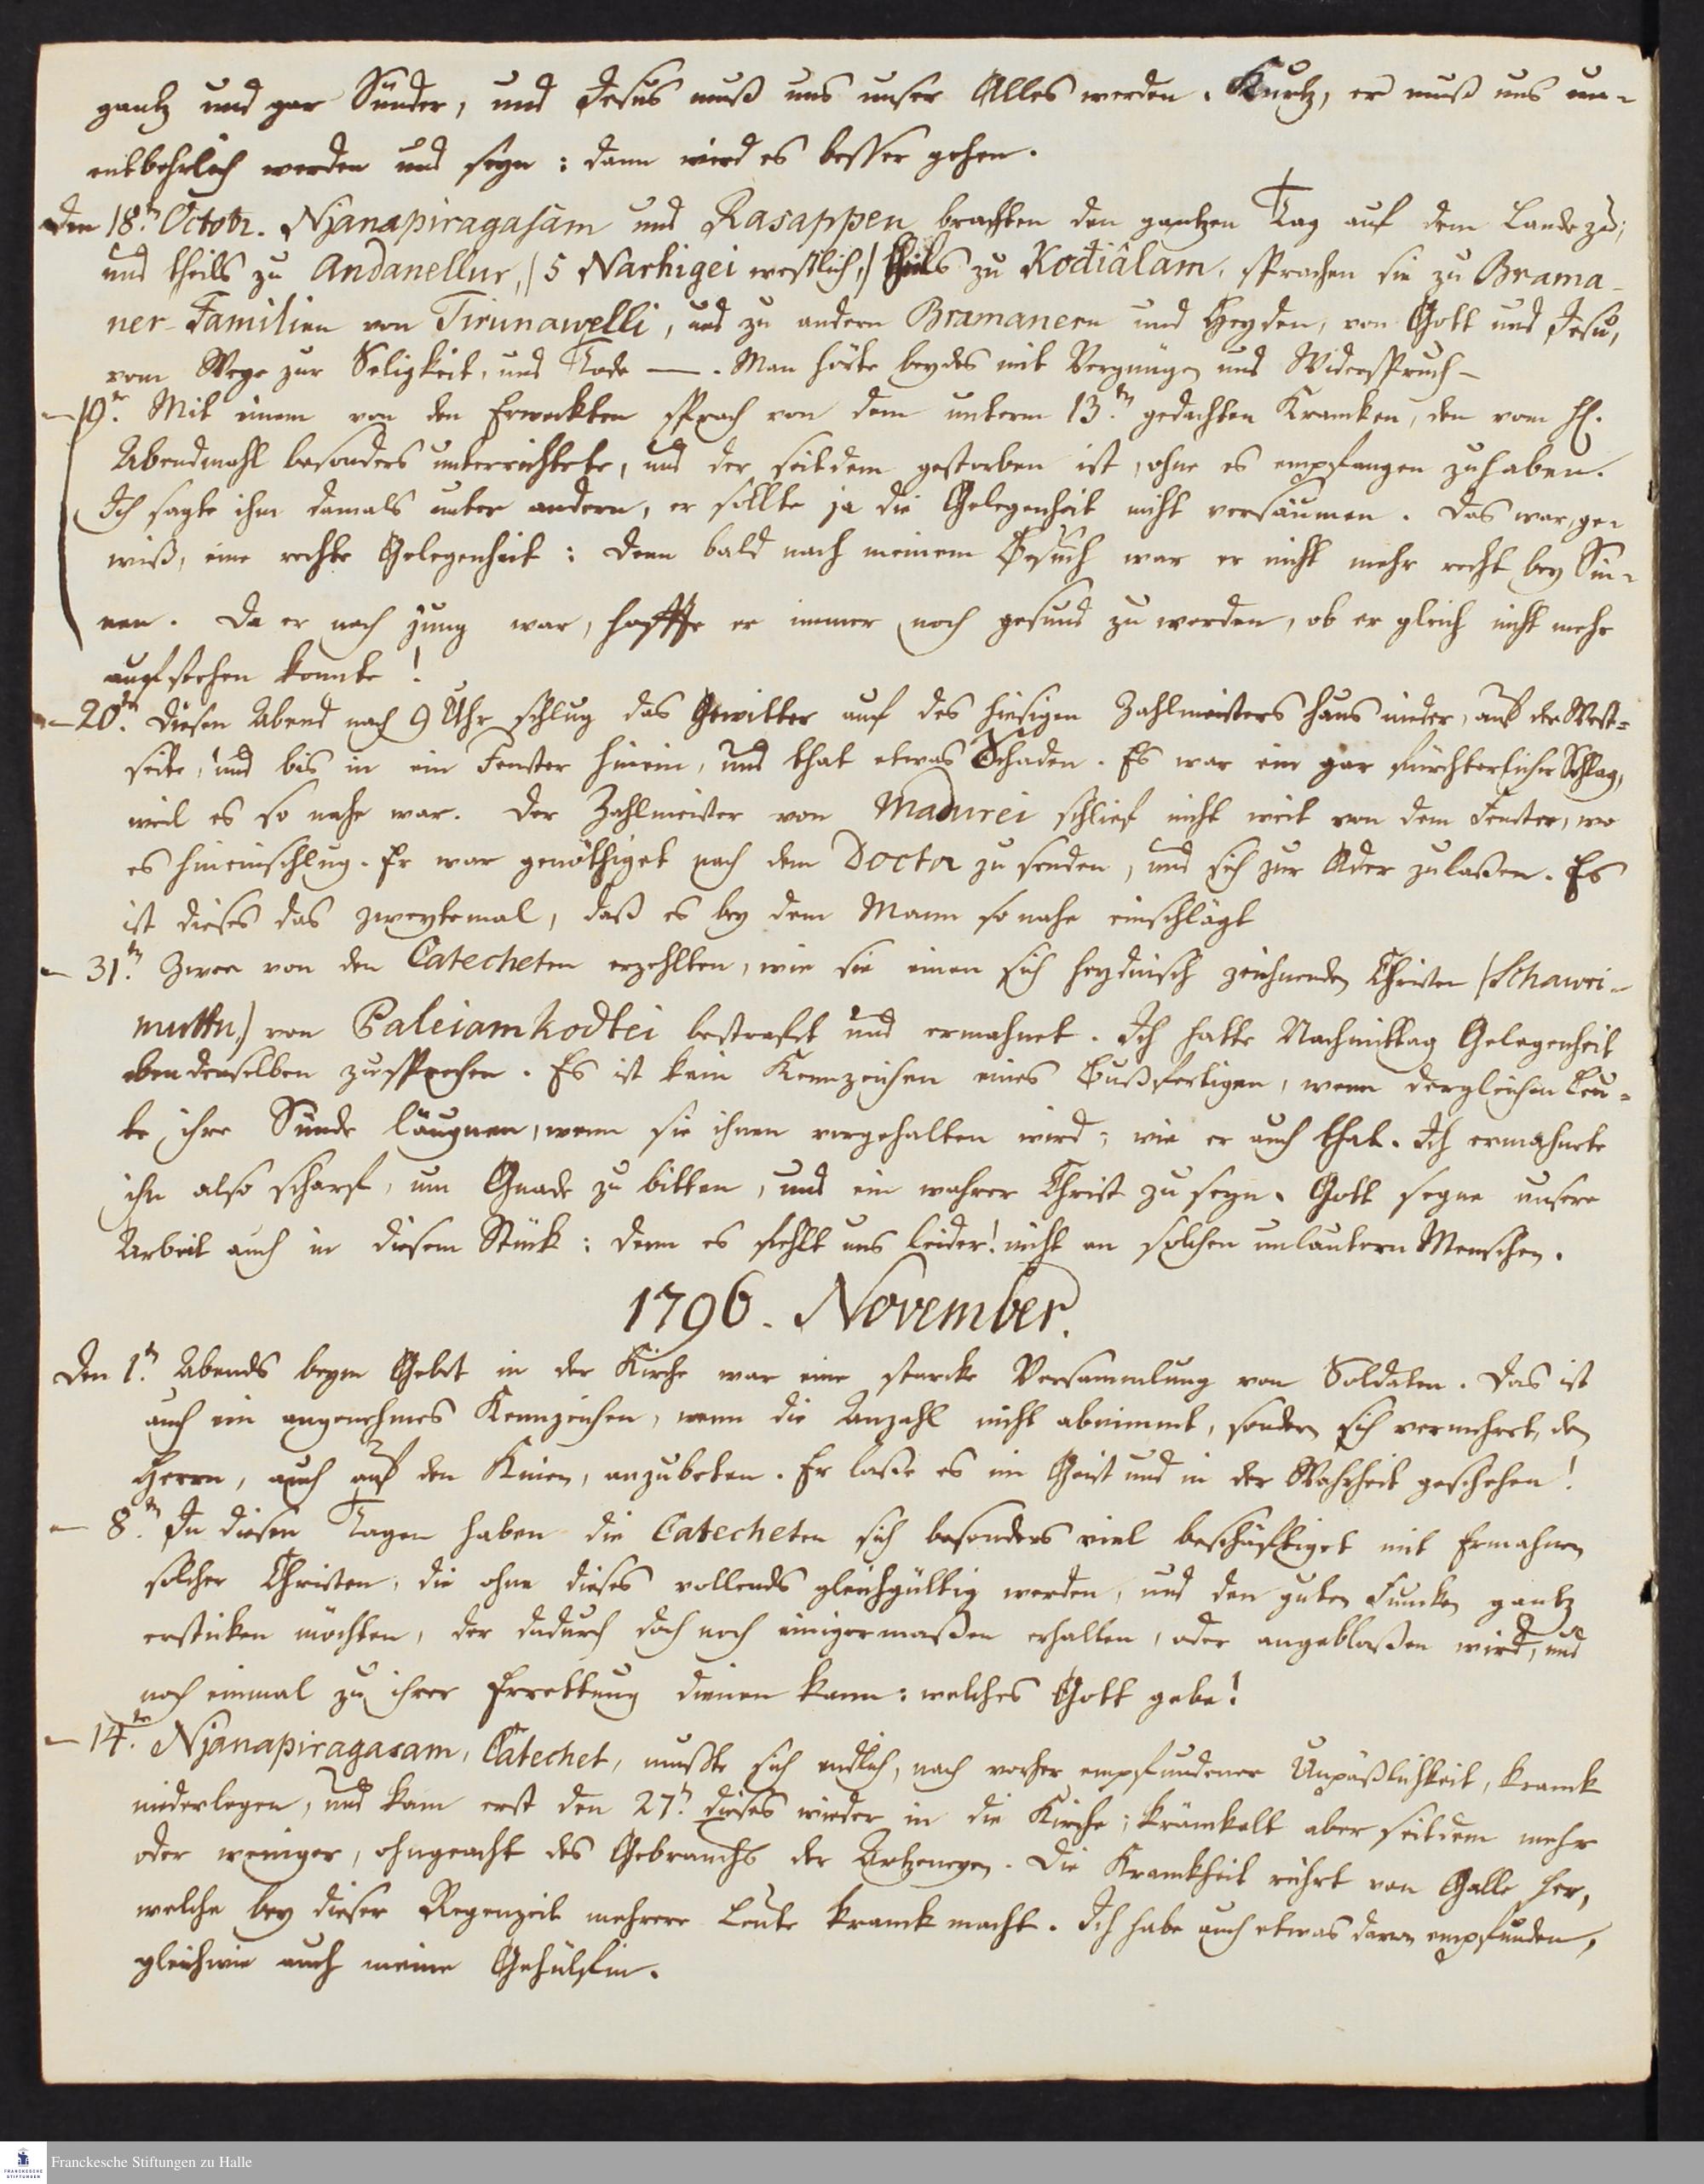 gantz und gar Sünder, und Jesus muß uns unser Alles werden. Kurtz, er muß uns un-
entbehrlich werden und seyn: dann wird es besser gehen.
Den 18.tn Octobr. Njanapiragasam und Rasappen brachten den gantzen Tag auf dem Lande zu;
und theils zu Andanellur, (5 Narhigei westlich,) theils zu Kodiâlam, sprachen sie zu Brama-
ner-Familien von Tirunawelli, und zu andern Bramanern und Heyden, von Gott und Jesu,
vom Wege zur Seligkeit, und Tode —. Man hörte beydes mit Vergnügen und Widerspruch –
– 19.tn Mit einem von den Erweckten sprach von dem unterm 13.tn gedachten Krancken, den vom Hl.
Abendmahl besonders unterrichtete, und der seitdem gestorben ist, ohne es empfangen zuhaben.
Ich sagte ihm damals unter andern, er sollte ja die Gelegenheit nicht versäumen. Das war, ge-
wiß, eine rechte Gelegenheit: denn bald nach meinem Besuch war er nicht mehr recht bey Sin-
nen. Da er noch jung war, hoffte er immer noch gesund zu werden, ob er gleich nicht mehr
aufstehen konnte!
– 20.tn Diesen Abend nach 9 Uhr schlug das Gewitter auf des hiesigen Zahlmeisters Haus nieder, auf der West-
seite, und bis in ein Fenster hinein, und that etwas Schaden. Es war ein gar fürchterlicher Schlag,
weil es so nahe war. Der Zahlmeister von Madurei schlief nicht weit von dem Fenster, wo
es hineinschlug. Er war genöthiget nach dem Doctor zu senden, und sich zur Ader zulaßen. Es
ist dieses das zweytemal, daß es bey dem Mann so nahe einschlägt
– 31.tn Zwee von den Catecheten erzehlten, wie sie einen sich heydnisch zeichnenden Christen (Schawri-
muttu,) von Paleiamkodtei bestraft und ermahnet. Ich hatte Nachmittag Gelegenheit
eben denselben zusprechen. Es ist kein Kennzeichen eines Bußfertigen, wenn dergleichen Leu-
te ihre Sünde läugnen, wenn sie ihnen vorgehalten wird; wie er auch that. Ich ermahnete
ihn also scharf, um Gnade zu bitten, und ein wahrer Christ zu seyn. Gott segne unsere
Arbeit auch in diesem Stück: denn es fehlt uns leider! nicht an solchen unlautern Menschen.
1796. November.
Den 1.tn Abends beym Gebet in der Kirche war eine starcke Versammlung von Soldaten. Das ist
auch ein angenehmes Kennzeichen, wenn die Anzahl nicht abnimmt, sondern sich vermehret, den
Herrn, auch auf den Knien, anzubeten. Er laße es im Geist und in der Wahrheit geschehen!
– 8.tn In diesen Tagen haben die Catecheten sich besonders viel beschäftiget mit Ermahnen
solcher Christen, die ohne dieses vollends gleichgültig werden, und den guten Funcken gantz
ersticken möchten, der dadurch doch noch einigermaßen erhalten, oder angeblaßen wird, und
noch einmal zu ihrer Errettung dienen kann: welches Gott gebe!
– 14.tn Njanapiragasam, Catechet, mußte sich endlich, nach vorher empfundener Unpäßlichkeit, kranck
niederlegen, und kam erst den 27.tn dieses wieder in die Kirche; kränckelt aber seitdem mehr
oder weniger, ohngeacht des Gebrauchs der Artzeneyen. Die Kranckheit rührt von Galle her,
welche bey dieser Regenzeit mehrere Leute kranck macht. Ich habe auch etwas davon empfunden,
gleichwie auch meine Gehülfin.
Franckesche Stiftungen zu Halle